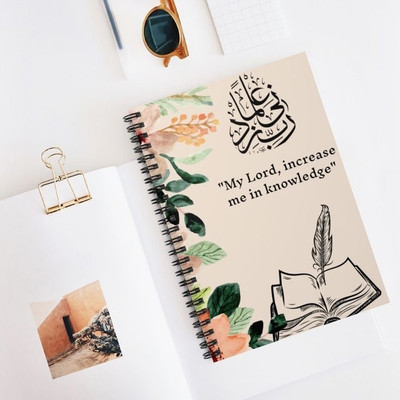 رَبِّ زِدْنِي عِلْمًا
"My Lord, increase
me in knowledge"